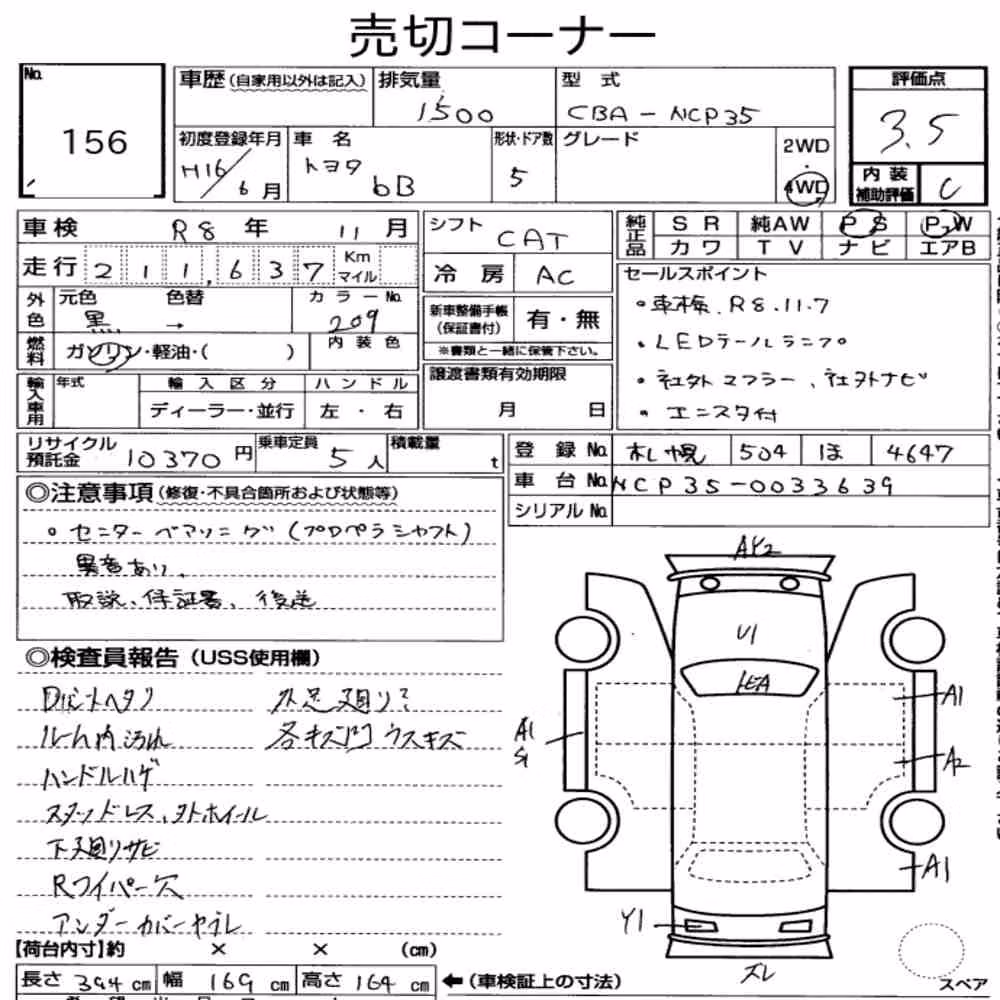 売切コーナー
No.
156
車歴(自家用以外は記入)
排気量
1500
型式
CBA-NCP35
評価点
3.5
初度登録年月
H16/6月
車名
トヨタ bB
形状・ドア数
5
グレード
2WD
・
4WD
内装補助評価
C
車検 R8年 11月
走行 211,637 Km マイル
外色 元色 黒 色替 → カラーNo. 209
燃料 ガソリン・軽油・( ) 内装色
輸入車用 年式 輸入区分 ハンドル
ディーラー・並行 左・右
シフト CAT
冷房 AC
新車整備手帳(保証書付) 有・無
※書類と一緒に保管下さい。
譲渡書類有効期限
月 日
純正品 SR 純AW PS PW
カワ TV ナビ エアB
セールスポイント
・車検、R8.11.7
・LEDテールランプ
・社外マフラー、社外ナビ
・エンスタ付
リサイクル預託金 10370円
乗車定員 5人
積載量 t
登録No. 札幌 504 ほ 4647
車台No. NCP35-0033639
シリアルNo.
◎注意事項(修復・不具合箇所および状態等)
・センターベアリング(プロペラシャフト)
異音あり、
取説、保証書、後送
◎検査員報告(USS使用欄)
ルーム内汚れ
ハンドルハゲ
スタッドレス、外ホイール
下廻りサビ
Rワイパー欠
アンダーカバーヤブレ
外足廻り
各キズ凹ウスキズ
AY2
U1
A1
S1
A1
A2
A1
Y1
ズレ
【荷台内寸】約 × × (cm)
長さ 394cm 幅 169cm 高さ 164cm
←(車検証上の寸法)
スペア